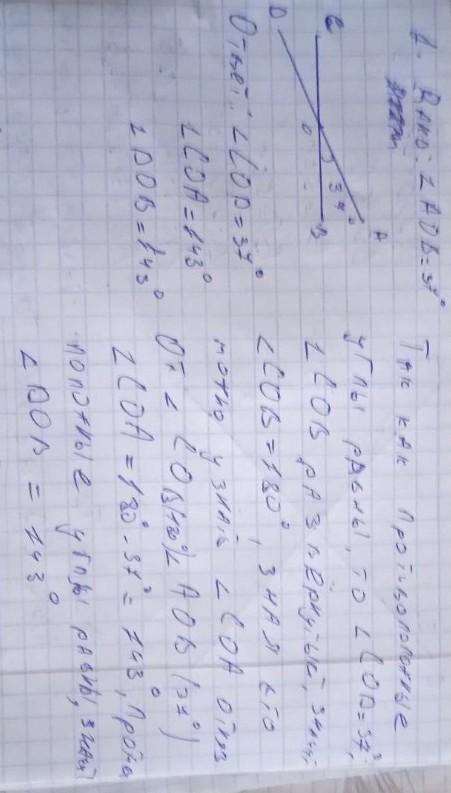 1. Дано: ∠AOB=37°
C
D
O
37°
A
B
Ответ: ∠COD=37°
∠COA=143°
∠DOB=143°
Так как противоположные
углы равны, то ∠COD=37°,
∠COB развёрнутый, значит
∠COB=180°, зная это
можно узнать ∠COA отняв
От ∠COB(180°)∠AOB(37°)
∠COA=180°-37°=143°, Проти
положные углы равны, значит
∠DOB=143°